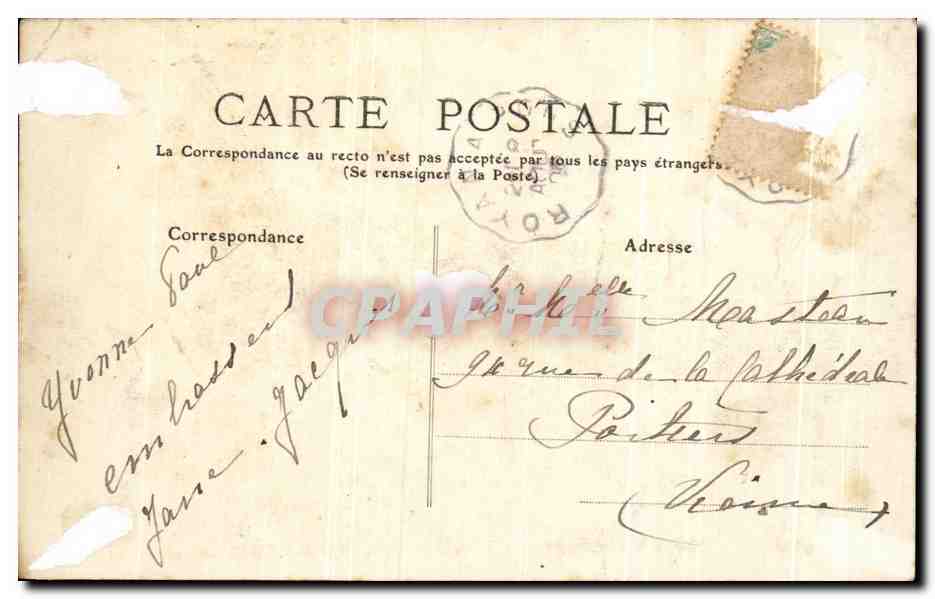 CARTE POSTALE
La Correspondance au recto n'est pas acceptée par tous les pays étrangers
(Se renseigner à la Poste)
ROYA
Correspondance
Adresse
Yvonne Paul
embrassent
Jane. Jacques
CPAPHIL
Melle Masteau
rue de la Cathédrale
Poitiers
(Vienne)